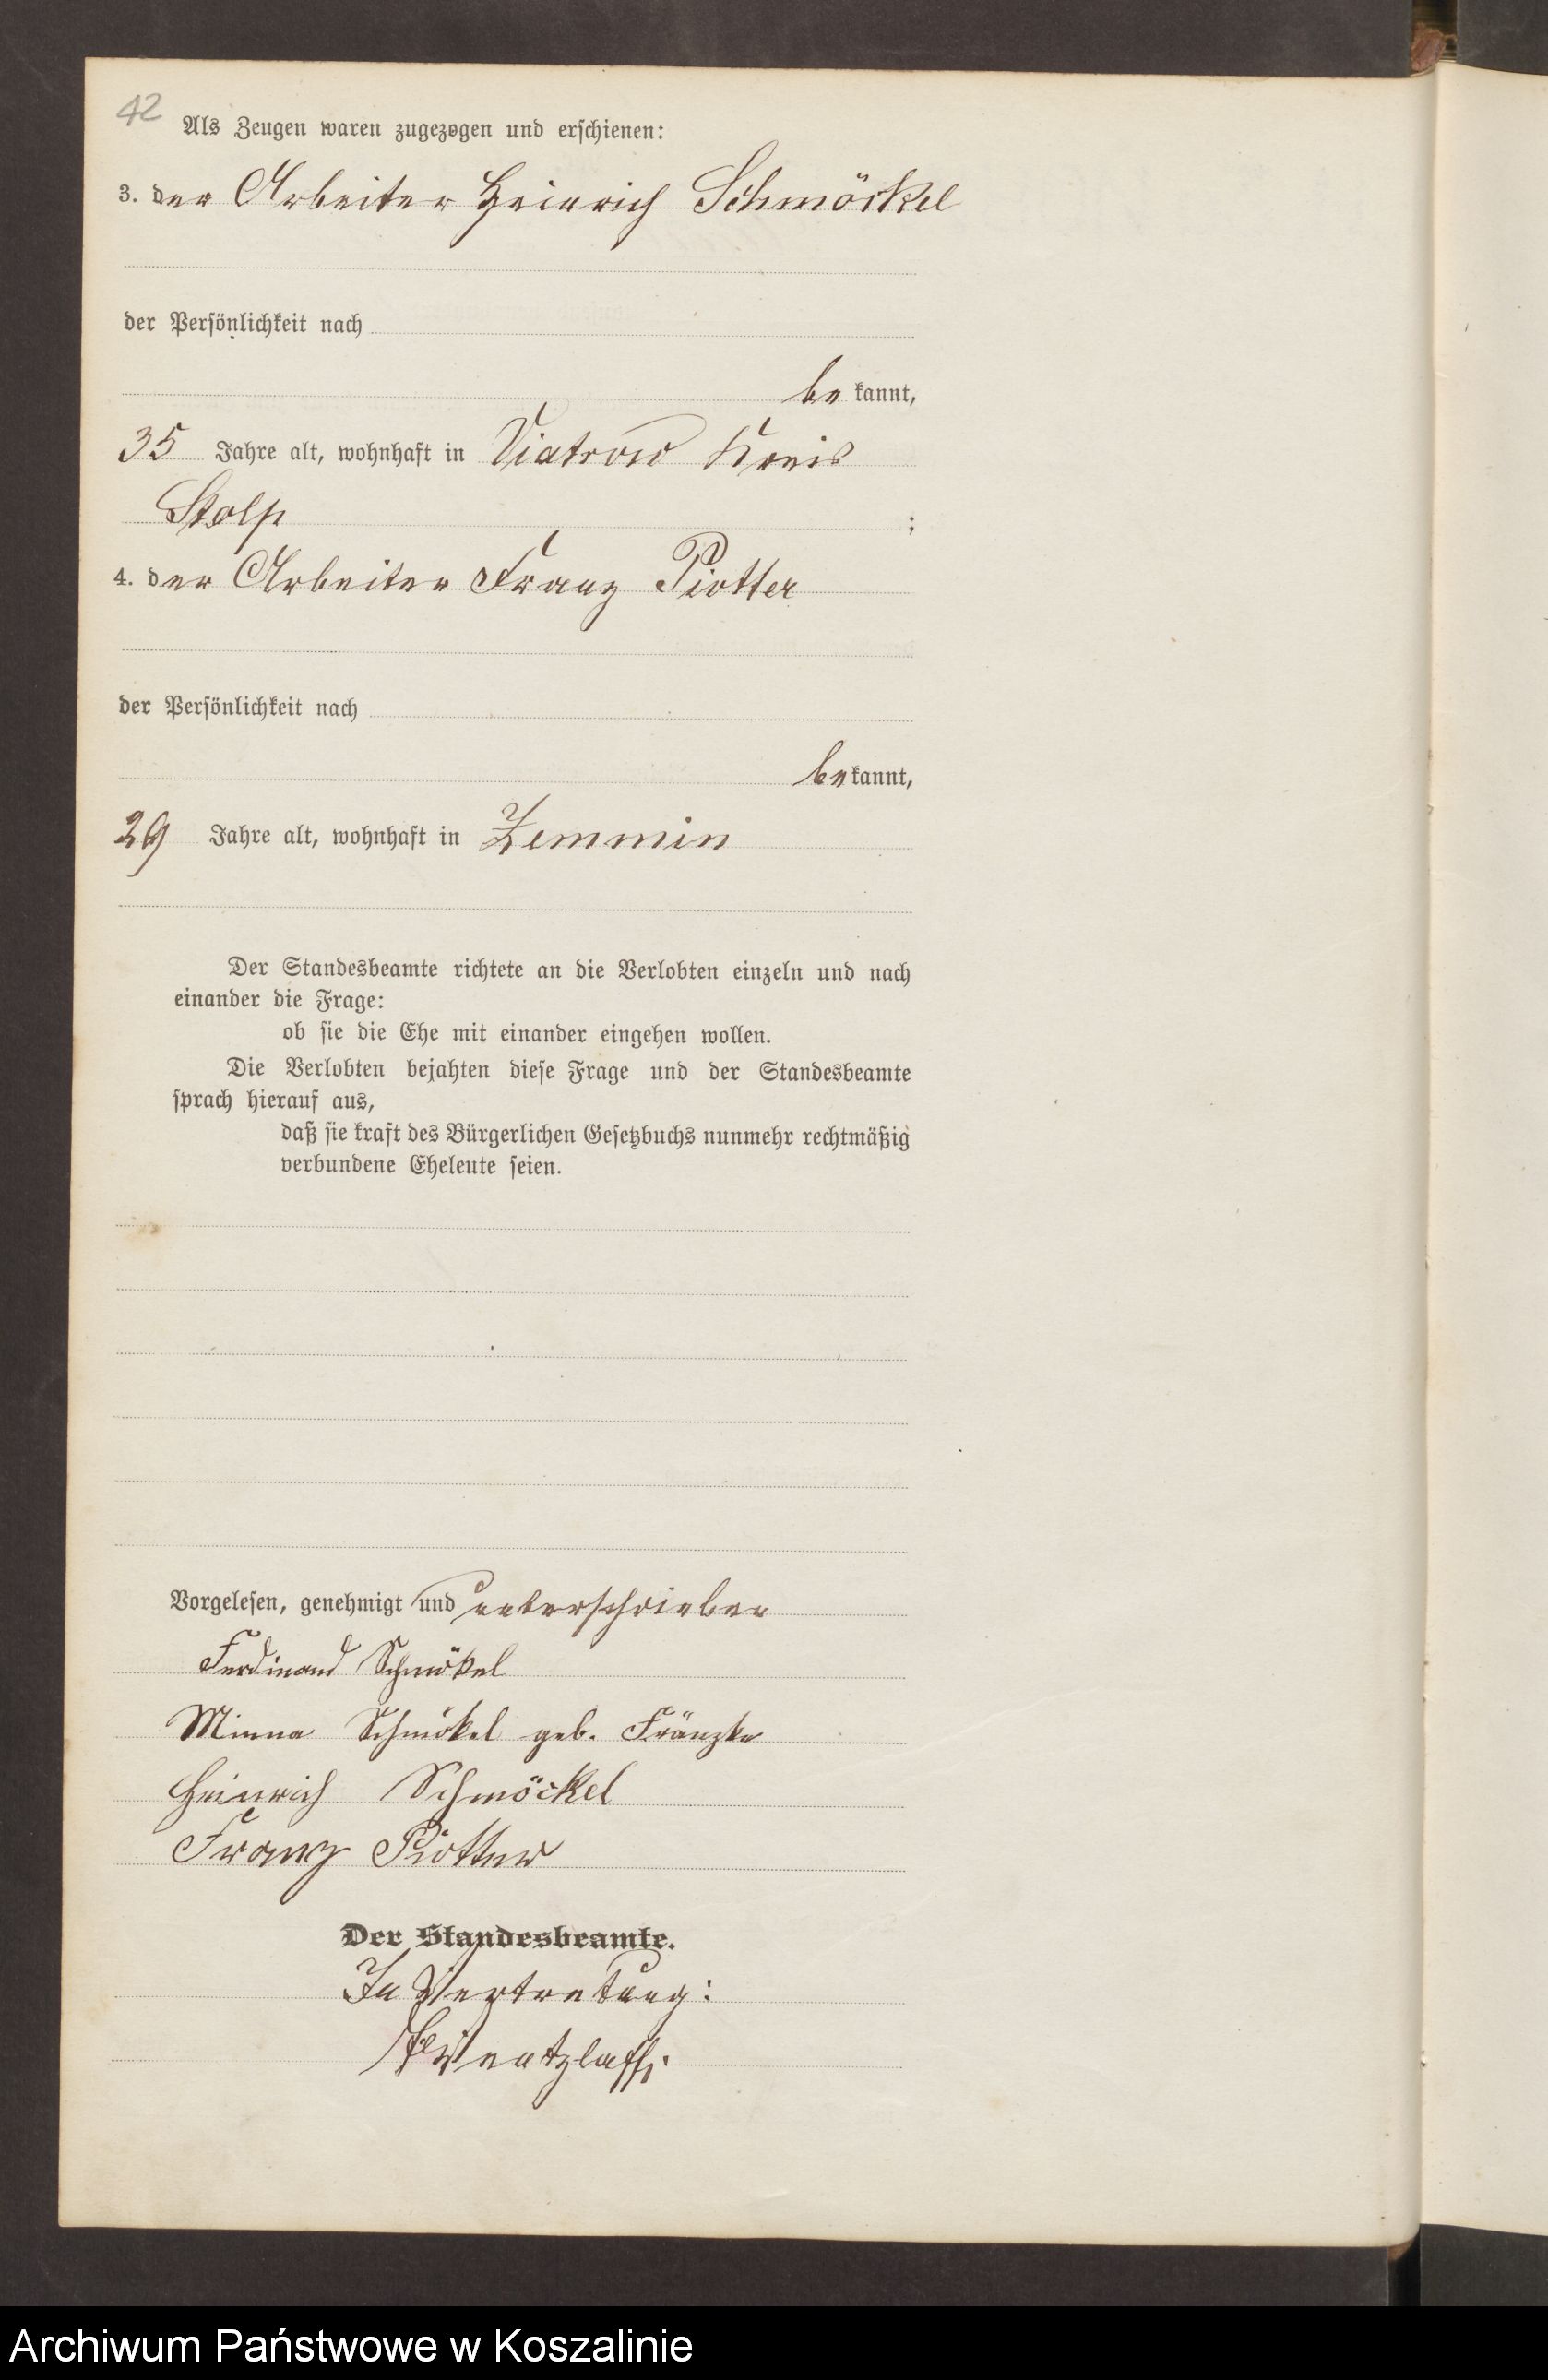 42
Als Zeugen waren zugezogen und erschienen:
3. der Arbeiter Heinrich Schmöckel
der Persönlichkeit nach
be kannt,
35 Jahre alt, wohnhaft in Viatrow Kreis
Stolp ;
4. der Arbeiter Franz Piotter
der Persönlichkeit nach
bekannt,
29 Jahre alt, wohnhaft in Zemmin
Der Standesbeamte richtete an die Verlobten einzeln und nach
einander die Frage:
ob sie die Ehe mit einander eingehen wollen.
Die Verlobten bejahten diese Frage und der Standesbeamte
sprach hierauf aus,
daß sie kraft des Bürgerlichen Gesetzbuchs nunmehr rechtmäßig
verbundene Eheleute seien.
Vorgelesen, genehmigt und unterschrieben
Ferdinand Schmökel
Minna Schmökel geb. Fränzke
Heinrich Schmöckel
Franz Piotter
Der Standesbeamte.
In Vertretung:
Wentzlaff.
Archiwum Państwowe w Koszalinie